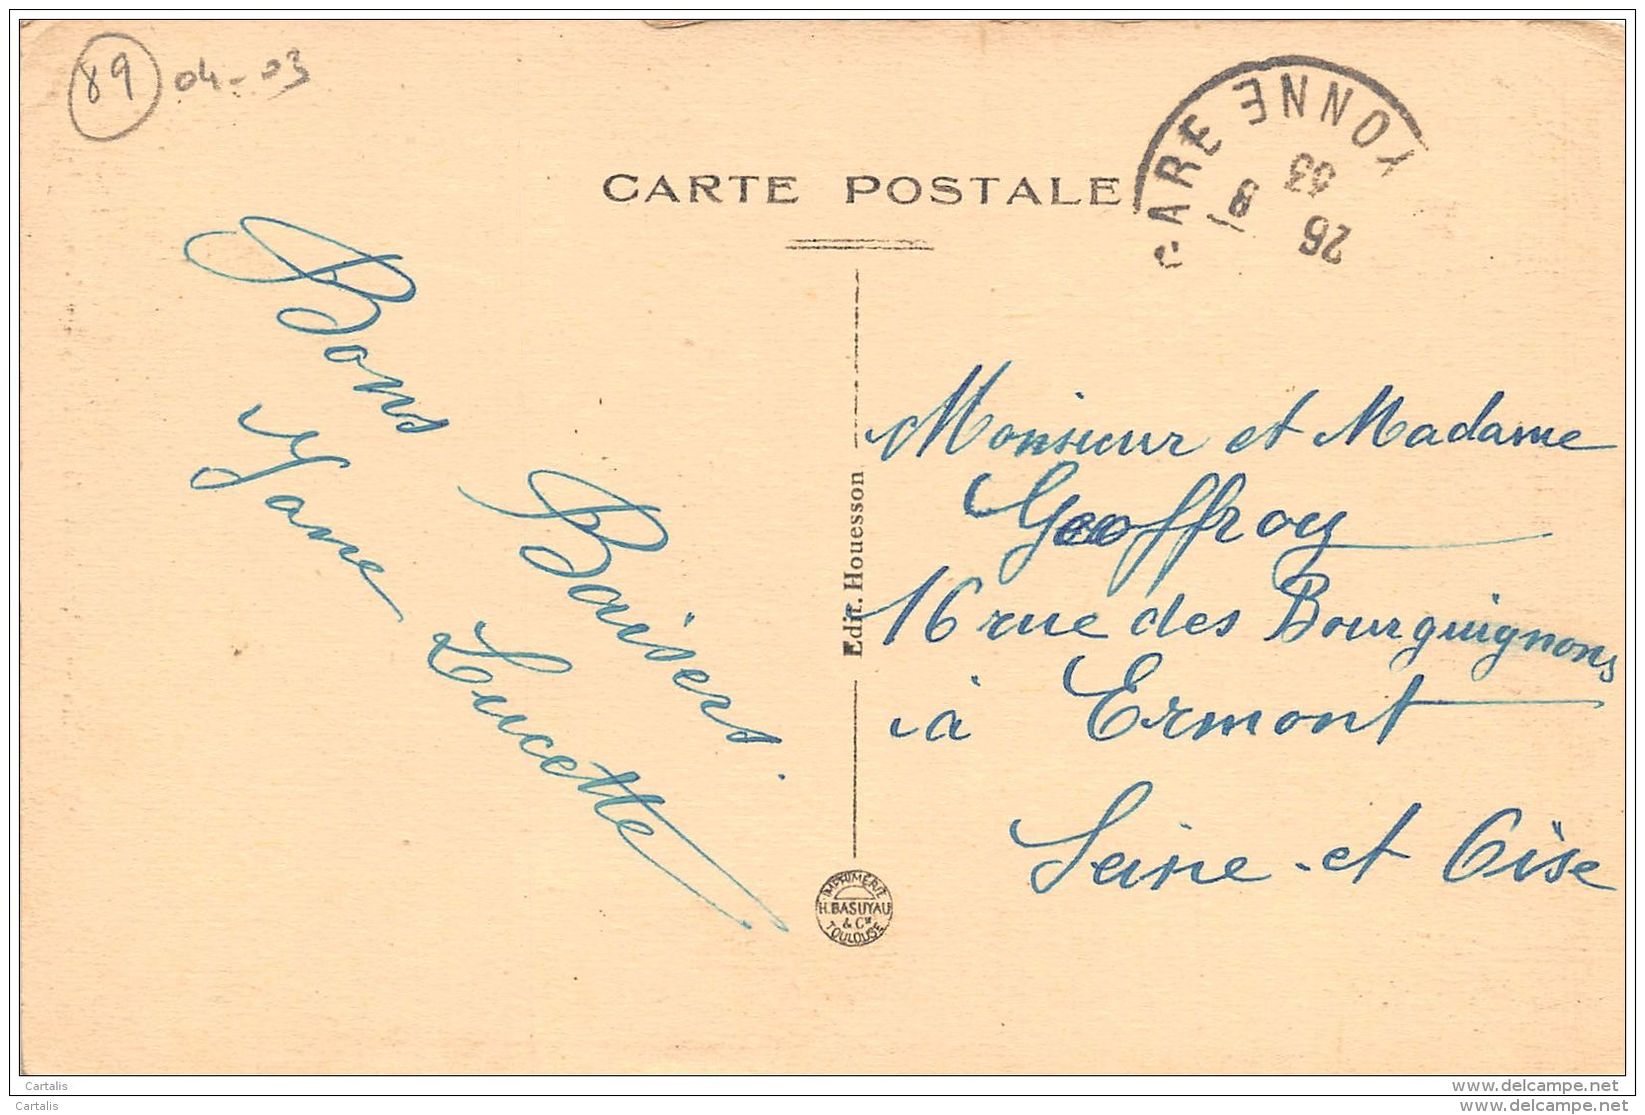 89 04-03
CARTE POSTALE
GARE YONNE
26 8 33
Bons Baisers.
Yane Lucette
Edit. Houesson
Monsieur et Madame
Geoffroy
16 rue des Bourguignons
à Ermont
Seine-et Oise
IMPRIMERIE
H. BASUYAU
& Cie
TOULOUSE
Cartalis
Cartalis
www.delcampe.net
www.delcampe.net